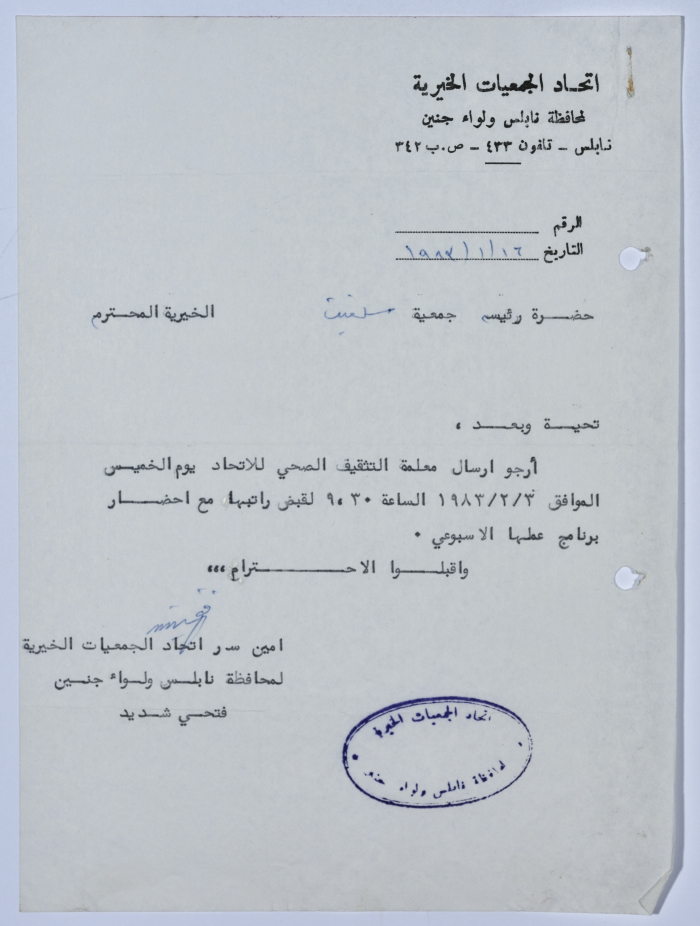 اتحاد الجمعيات الخيرية
لمحافظة نابلس ولواء جنين
نابلس - تلفون ٤٣٣ - ص.ب ٣٤٢
الرقم
التاريخ ١٩٨٣/١/١٦
حضرة رئيسه جمعية سلفيت الخيرية المحترم
تحية وبعد ،
أرجو ارسال معلمة التثقيف الصحي للاتحاد يوم الخميس
الموافق ١٩٨٣/٢/٣ الساعة ٩،٣٠ لقبض راتبها مع احضار
برنامج عملها الاسبوعي .
واقبلوا الاحترام ،،،
امين سر اتحاد الجمعيات الخيرية
لمحافظة نابلس ولواء جنين
فتحي شديد
اتحاد الجمعيات الخيرية
لمحافظة نابلس ولواء جنين